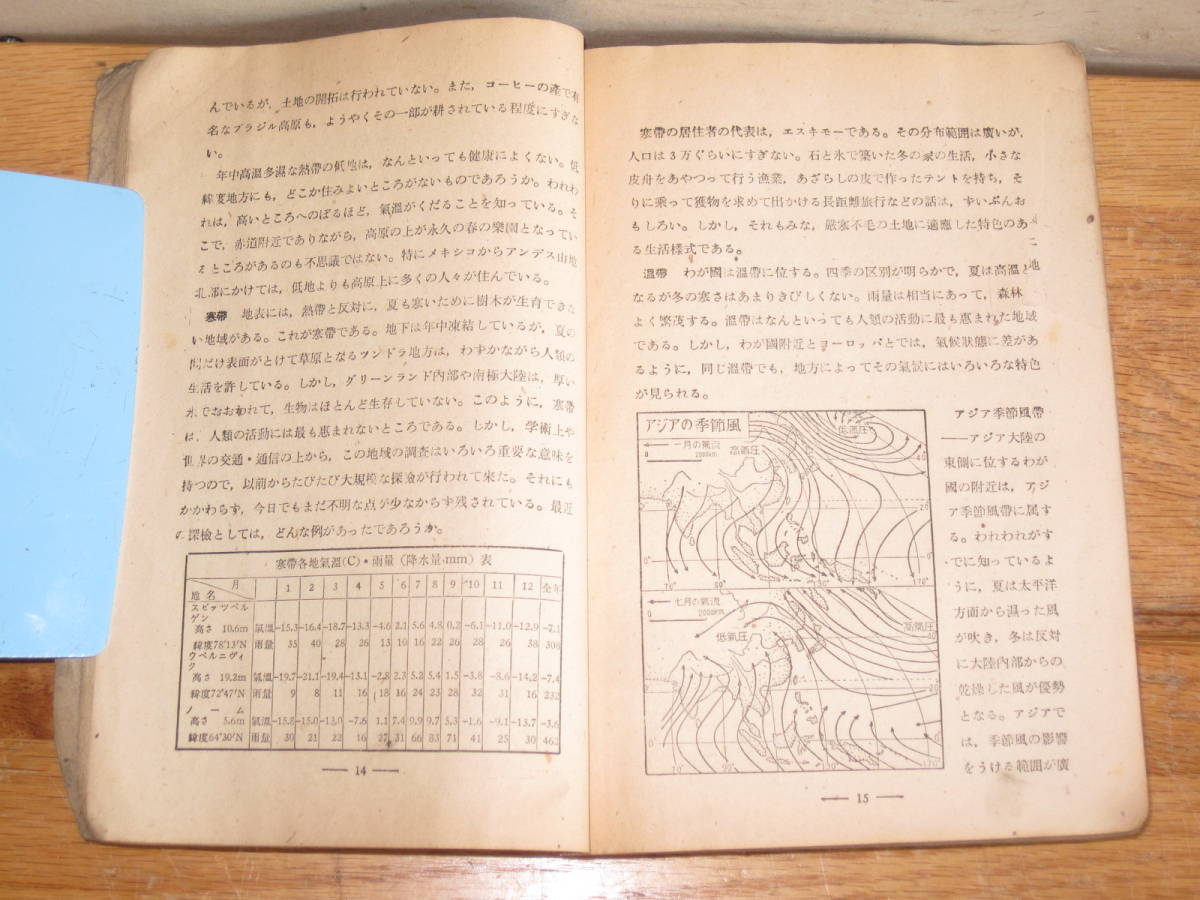 んでいるが，土地の開拓は行われていない。また，コーヒーの産で有
名なブラジル高原も，ようやくその一部が耕されている程度にすぎな
い。
年中高温多濕な熱帶の低地は，なんといっても健康によくない。低
緯度地方にも，どこか住みよいところがないものであろうか。われわ
れは，高いところへのぼるほど，氣溫がくだることを知っている。そ
こで，赤道附近でありながら，高原の上が永久の春の樂園となってい
るところがあるのも不思議ではない。特にメキシコからアンデス山地
北部にかけては，低地よりも高原上に多くの人々が住んでいる。
寒帶　地表には，熱帶と反対に，夏も寒いために樹木が生育できな
い地域がある。これが寒帶である。地下は年中凍結しているが，夏の
間だけ表面がとけて草原となるツンドラ地方は，わずかながら人類の
生活を許している。しかし，グリーンランド内部や南極大陸は，厚い
氷でおおわれて，生物はほとんど生存していない。このように，寒帶
は，人類の活動には最も惠まれないところである。しかし，学術上や
世界の交通・通信の上から，この地域の調査はいろいろ重要な意味を
持つので，以前からたびたび大規模な探險が行われて来た。それにも
かかわらず，今日でもまだ不明な点が少なからず残されている。最近
の探檢としては，どんな例があったであろうか。
寒帶各地氣溫(C)・雨量（降水量mm）表
地名 月 1 2 3 4 5 6 7 8 9 10 11 12 全年
スピッツベル
ゲン
高さ 10.6m 氣溫 -15.3 -16.4 -18.7 -13.3 -4.6 2.1 5.6 4.8 0.2 -6.1 -11.0 -12.9 -7.1
緯度78°13′N 雨量 35 40 28 26 13 10 16 22 26 28 26 38 308
ウペルニヴィ
ク
高さ 19.2m 氣溫 -19.7 -21.1 -19.4 -13.1 -2.8 2.3 5.2 5.4 1.5 -3.8 -8.6 -14.2 -7.4
緯度72°47′N 雨量 9 8 11 16 18 16 24 23 28 32 31 16 232
ノーム
高さ 5.6m 氣溫 -15.8 -15.0 -13.0 -7.6 1.1 7.4 9.9 9.7 5.3 -1.6 -9.1 -13.7 -3.6
緯度64°30′N 雨量 30 21 22 16 27 31 66 83 71 41 25 30 462
— 14 —
寒帶の居住者の代表は，エスキモーである。その分布範囲は廣いが，
人口は3万ぐらいにすぎない。石と氷で築いた冬の家の生活，小さな
皮舟をあやつって行う漁業，あざらしの皮で作ったテントを持ち，そ
りに乗って獲物を求めて出かける長距離旅行などの話は，ずいぶんお
もしろい。しかし，それもみな，厳寒不毛の土地に適應した特色のあ
る生活様式である。
溫帶　わが國は溫帶に位する。四季の区別が明らかで，夏は高溫と
なるが冬の寒さはあまりきびしくない。雨量は相当にあって，森林
よく繁茂する。溫帶はなんといっても人類の活動に最も惠まれた地域
である。しかし，わが國附近とヨーロッパとでは，氣候狀態に差があ
るように，同じ溫帶でも，地方によってその氣候にはいろいろな特色
が見られる。
アジアの季節風
一月の氣流
0 2000km
高氣圧
低氣圧
40
20
0°
70° 90° 130° 150° 170°
七月の氣流
0 2000km
低氣圧
高氣圧
40
20
0°
70° 90° 130° 150° 170°
アジア季節風帶
——アジア大陸の
東側に位するわが
國の附近は，アジ
ア季節風帶に属す
る。われわれがす
でに知っているよ
うに，夏は太平洋
方面から濕った風
が吹き，冬は反対
に大陸內部からの
乾燥した風が優勢
となる。アジアで
は，季節風の影響
をうける範囲が廣
— 15 —